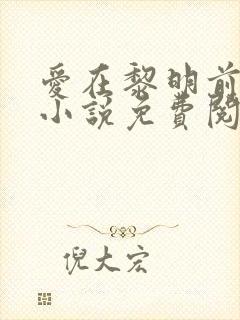 愛在黎明前
小說免費閱
倪大宏